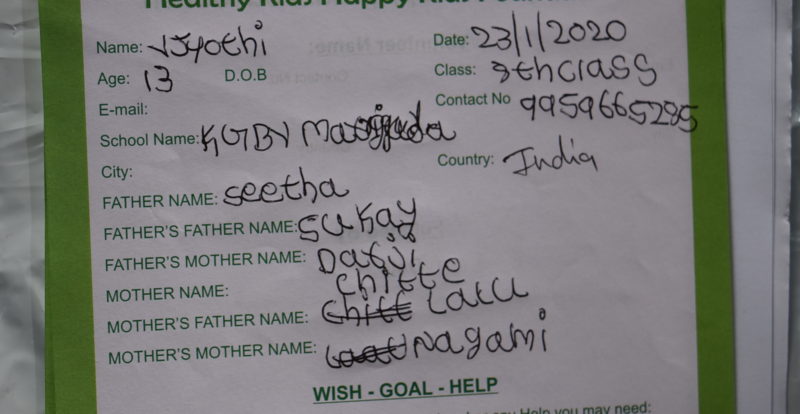 Healthy Kids Happy Kids
Name: V Jyothi Date: 23/1/2020
Age: 13 D.O.B Class: 9th class
E-mail: Contact No 9959665295
School Name: KGBV
City: Country: India
FATHER NAME: seetha
FATHER'S FATHER NAME: SUKay
FATHER'S MOTHER NAME:
MOTHER NAME: chitte
MOTHER'S FATHER NAME:
MOTHER'S MOTHER NAME: Nagami
WISH - GOAL - HELP
any Help you may need: